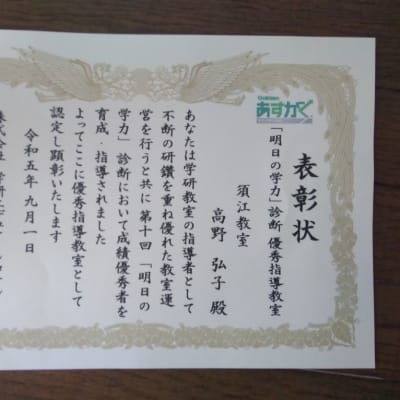 あすがく
表彰状
「明日の学力」診断 優秀指導教室
須江教室
高野 弘子 殿
あなたは学研教室の指導者として
不断の研鑽を重ね優れた教室運
営を行うと共に 第十回 「明日の
学力」診断において成績優秀者を
育成・指導されました
よってここに優秀指導教室として
認定し顕彰いたします
令和五年 九月一日
株式会社 学研